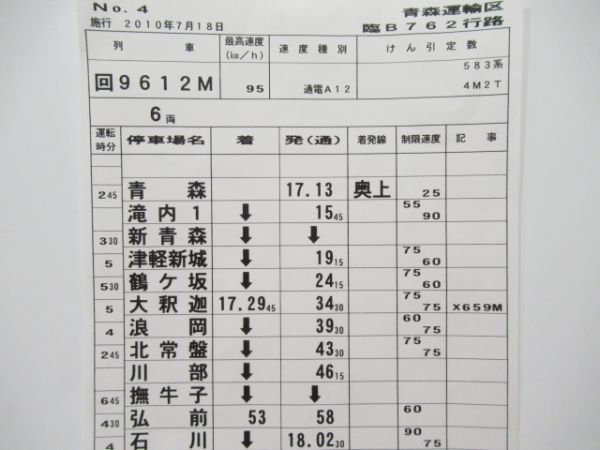 No. 4 青森運輸区
施行 2010年7月18日 臨B762行路
列 車 最高速度(km/h) 速度種別 けん引定数
回9612M 95 通電A12 583系 4M2T
6両
運転時分 停車場名 着 発(通) 着発線 制限速度 記事
245 青森 17.13 奥上 25
滝内1 ↓ 1545 55 90
330 新青森 ↓ ↓
5 津軽新城 ↓ 1915 75 60
530 鶴ケ坂 ↓ 2415 75 60
5 大釈迦 17.2945 3430 75 75 ×659M
4 浪岡 ↓ 3930 60 75
245 北常盤 ↓ 4330 75 75
川部 ↓ 4615
645 撫牛子 ↓ ↓
430 弘前 53 58 60
4 石川 ↓ 18.0230 90 75